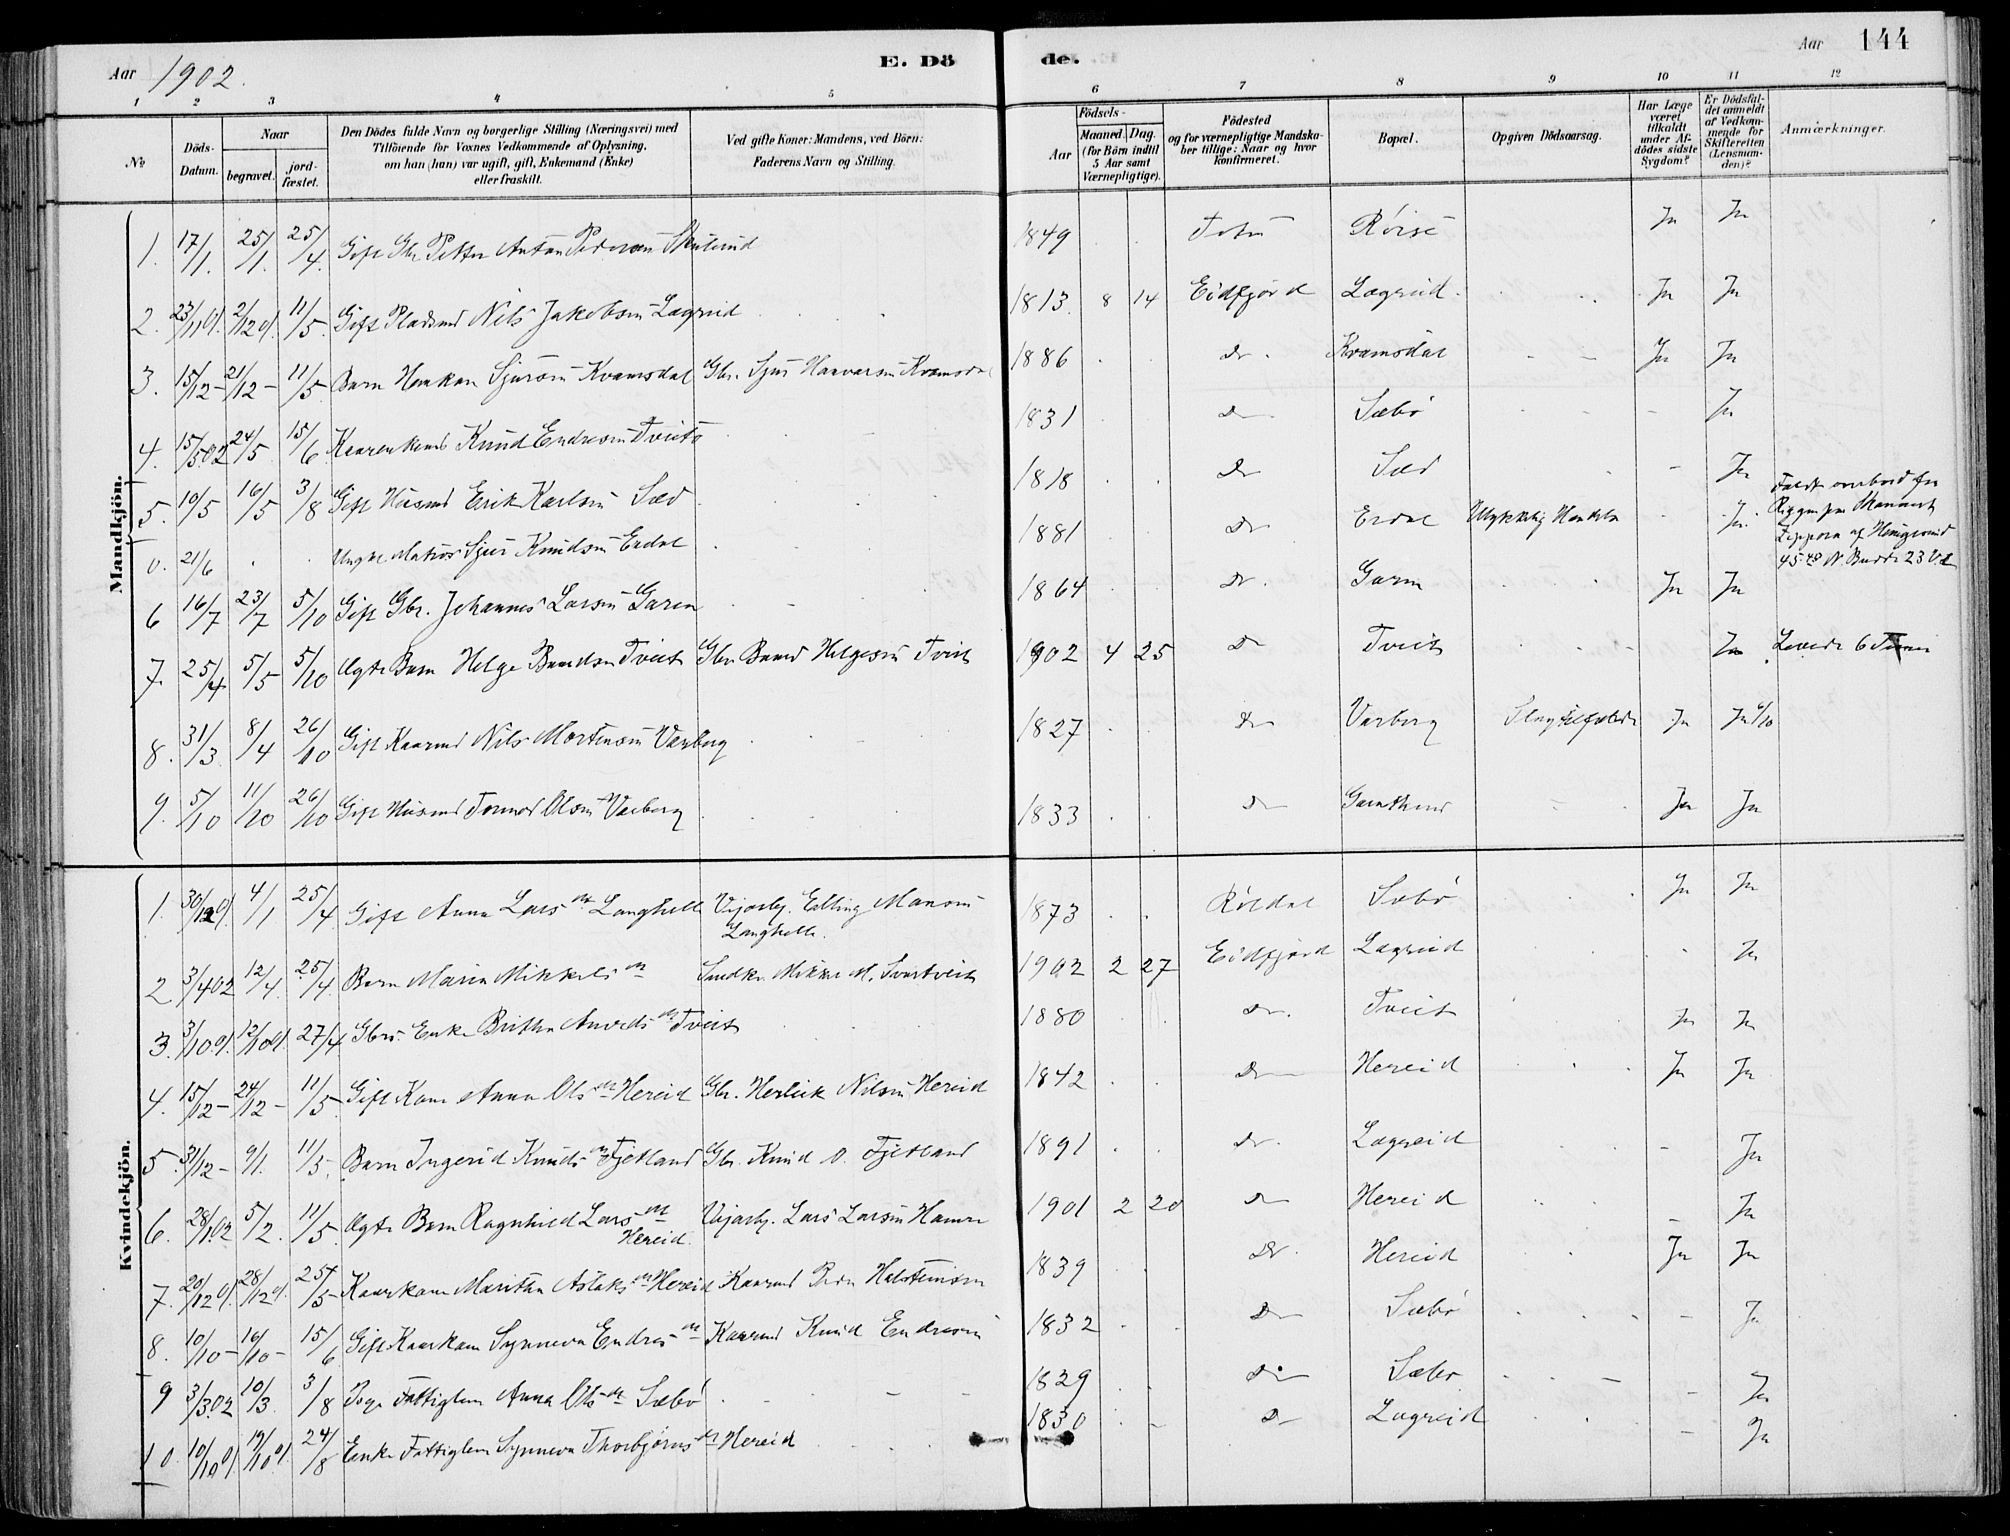 Aar 1902.
E. Dö
de.
Aar 144
1 2 3 4 5 6 7 8 9 10 11 12
№
Döds-Datum.
Naar
begravet.
jord-fæstet.
Den Dödes fulde Navn og borgerlige Stilling (Næringsvei) med
Tilföiende for Voxnes Vedkommende af Oplysning,
om han (hun) var ugift, gift, Enkemand (Enke)
eller fraskilt.
Ved gifte Koner: Mandens, ved Börn:
Faderens Navn og Stilling.
Födsels-
Aar
Maaned. Dag.
(for Börn indtil
5 Aar samt
Værnepligtige).
Födested
og for værnepligtige Mandska-
ber tillige: Naar og hvor
konfirmeret.
Bopæl.
Opgiven Dödsaarsag.
Har Læge
været
tilkaldt
under Af-
dödes sidste
Sygdom?
Er Dödsfal-
det anmeldt
af Vedkom-
mende for
Skifteretten
(Lensman-
den)?
Anmærkninger.
Mandkjön.
1. 17/1. 25/1. 25/4. Gift Gbr Petter Anton Pedersen 1849 Røise Ja Ja
2. 23/11 01. 2/12 01. 11/5. Gift Pladsmd Nils Jakobsen Lægreid 1813. 8 14 Eidfjord Lægreid. Ja Ja
3. 15/12 - 21/12 - 11/5. Barn Haakon Sjursen Kvamsdal Gbr. Sjur Haavarsen Kvamsdal 1886 Do. Kvamsdal Ja Ja
4. 15/5 02 24/5. 15/6. Kaarenkemd Knud Endresen Tveito 1831 Do Sæbø Ja
5. 10/5 16/5 3/8 Gift Husmd Erik Karlsen Sæd 1818 Do Sæd Ja
0. 21/6 Ungk. Matros Sjur Knudsen Erdal 1881 Do Erdal Ulykkelig Hændelse Ja. Faldt overbord fra
6 16/7 23/7 5/10 Gift Gbr. Johannes Larsen Garen 1864 Do. Garen Ja Ja
7. 25/4 5/5 5/10 Ægte Barn Helge Baardsen Tveit Gbr Baard Helgesen Tveit 1902 4 25 Do Tveit Ja Levede 6 Timer
8. 31/3 8/4 26/10 Gift Kaarmd Nils Mortensen Varberg 1827 Do Varberg Slagtilfælde Ja Ja 4/10
9. 5/10 11/10 26/10 Gift Husmd Tormod Olsen Varberg 1833 Do Ja Ja
Kvindekjön.
1. 30/12 01. 4/1 25/4. Gift Anna Larsdr Langhelle Vejarb. Elling Monsen
Langhelle. 1873 Røldal Sæbø Ja Ja
2 3/4 02 12/4. 25/4. Barn Maria Mikkelsdr Smedkr. Mikkel M. Svartveit 1902 2 27 Eidfjord Lægreid Ja
3. 3/10 01. 12/10 01. 27/4 Gbrs. Enke Britha Anvedsdr Tveit 1880 Do. Tveit Ja Ja
4. 15/12 - 24/12 - 11/5. Gift Kone Anna Olsdr Hereid Gbr. Herleik Nilsen Hereid 1842 Do Hereid Ja Ja
5. 31/12 - 9/1. 11/5. Barn Ingerid Knudsdr Fjetland Gbr. Knud O. Fjetland 1891 Do. Lægreid Ja
6. 28/1 02 5/2. 11/5. Ægte Barn Ragnhild Larsdr
Hereid. Vejarb. Lars Larsen Hamre 1901 2 20 Do Hereid Ja
7. 20/12 01. 28/12 01. 25/5 Kaarkone Maritha Aslaksdr Hereid Kaarmd Peder Halsteinsen 1839 Do. Hereid Ja Ja
8. 10/10 - 16/10 - 15/6 Gift Kaarkone Synneva Endresdr Kaarmd Knud Endresen 1832 Do Sæbø Ja
9 3/3 02 10/3. 3/8 Pige Fattiglem Anna Olsdr Sæbø 1829 Do Sæbø Ja
10. 10/10 01. 19/10 01. 24/8 Enke Fattiglem Synneva Thorbjørnsdr Hereid 1830 Do Lægreid Ja